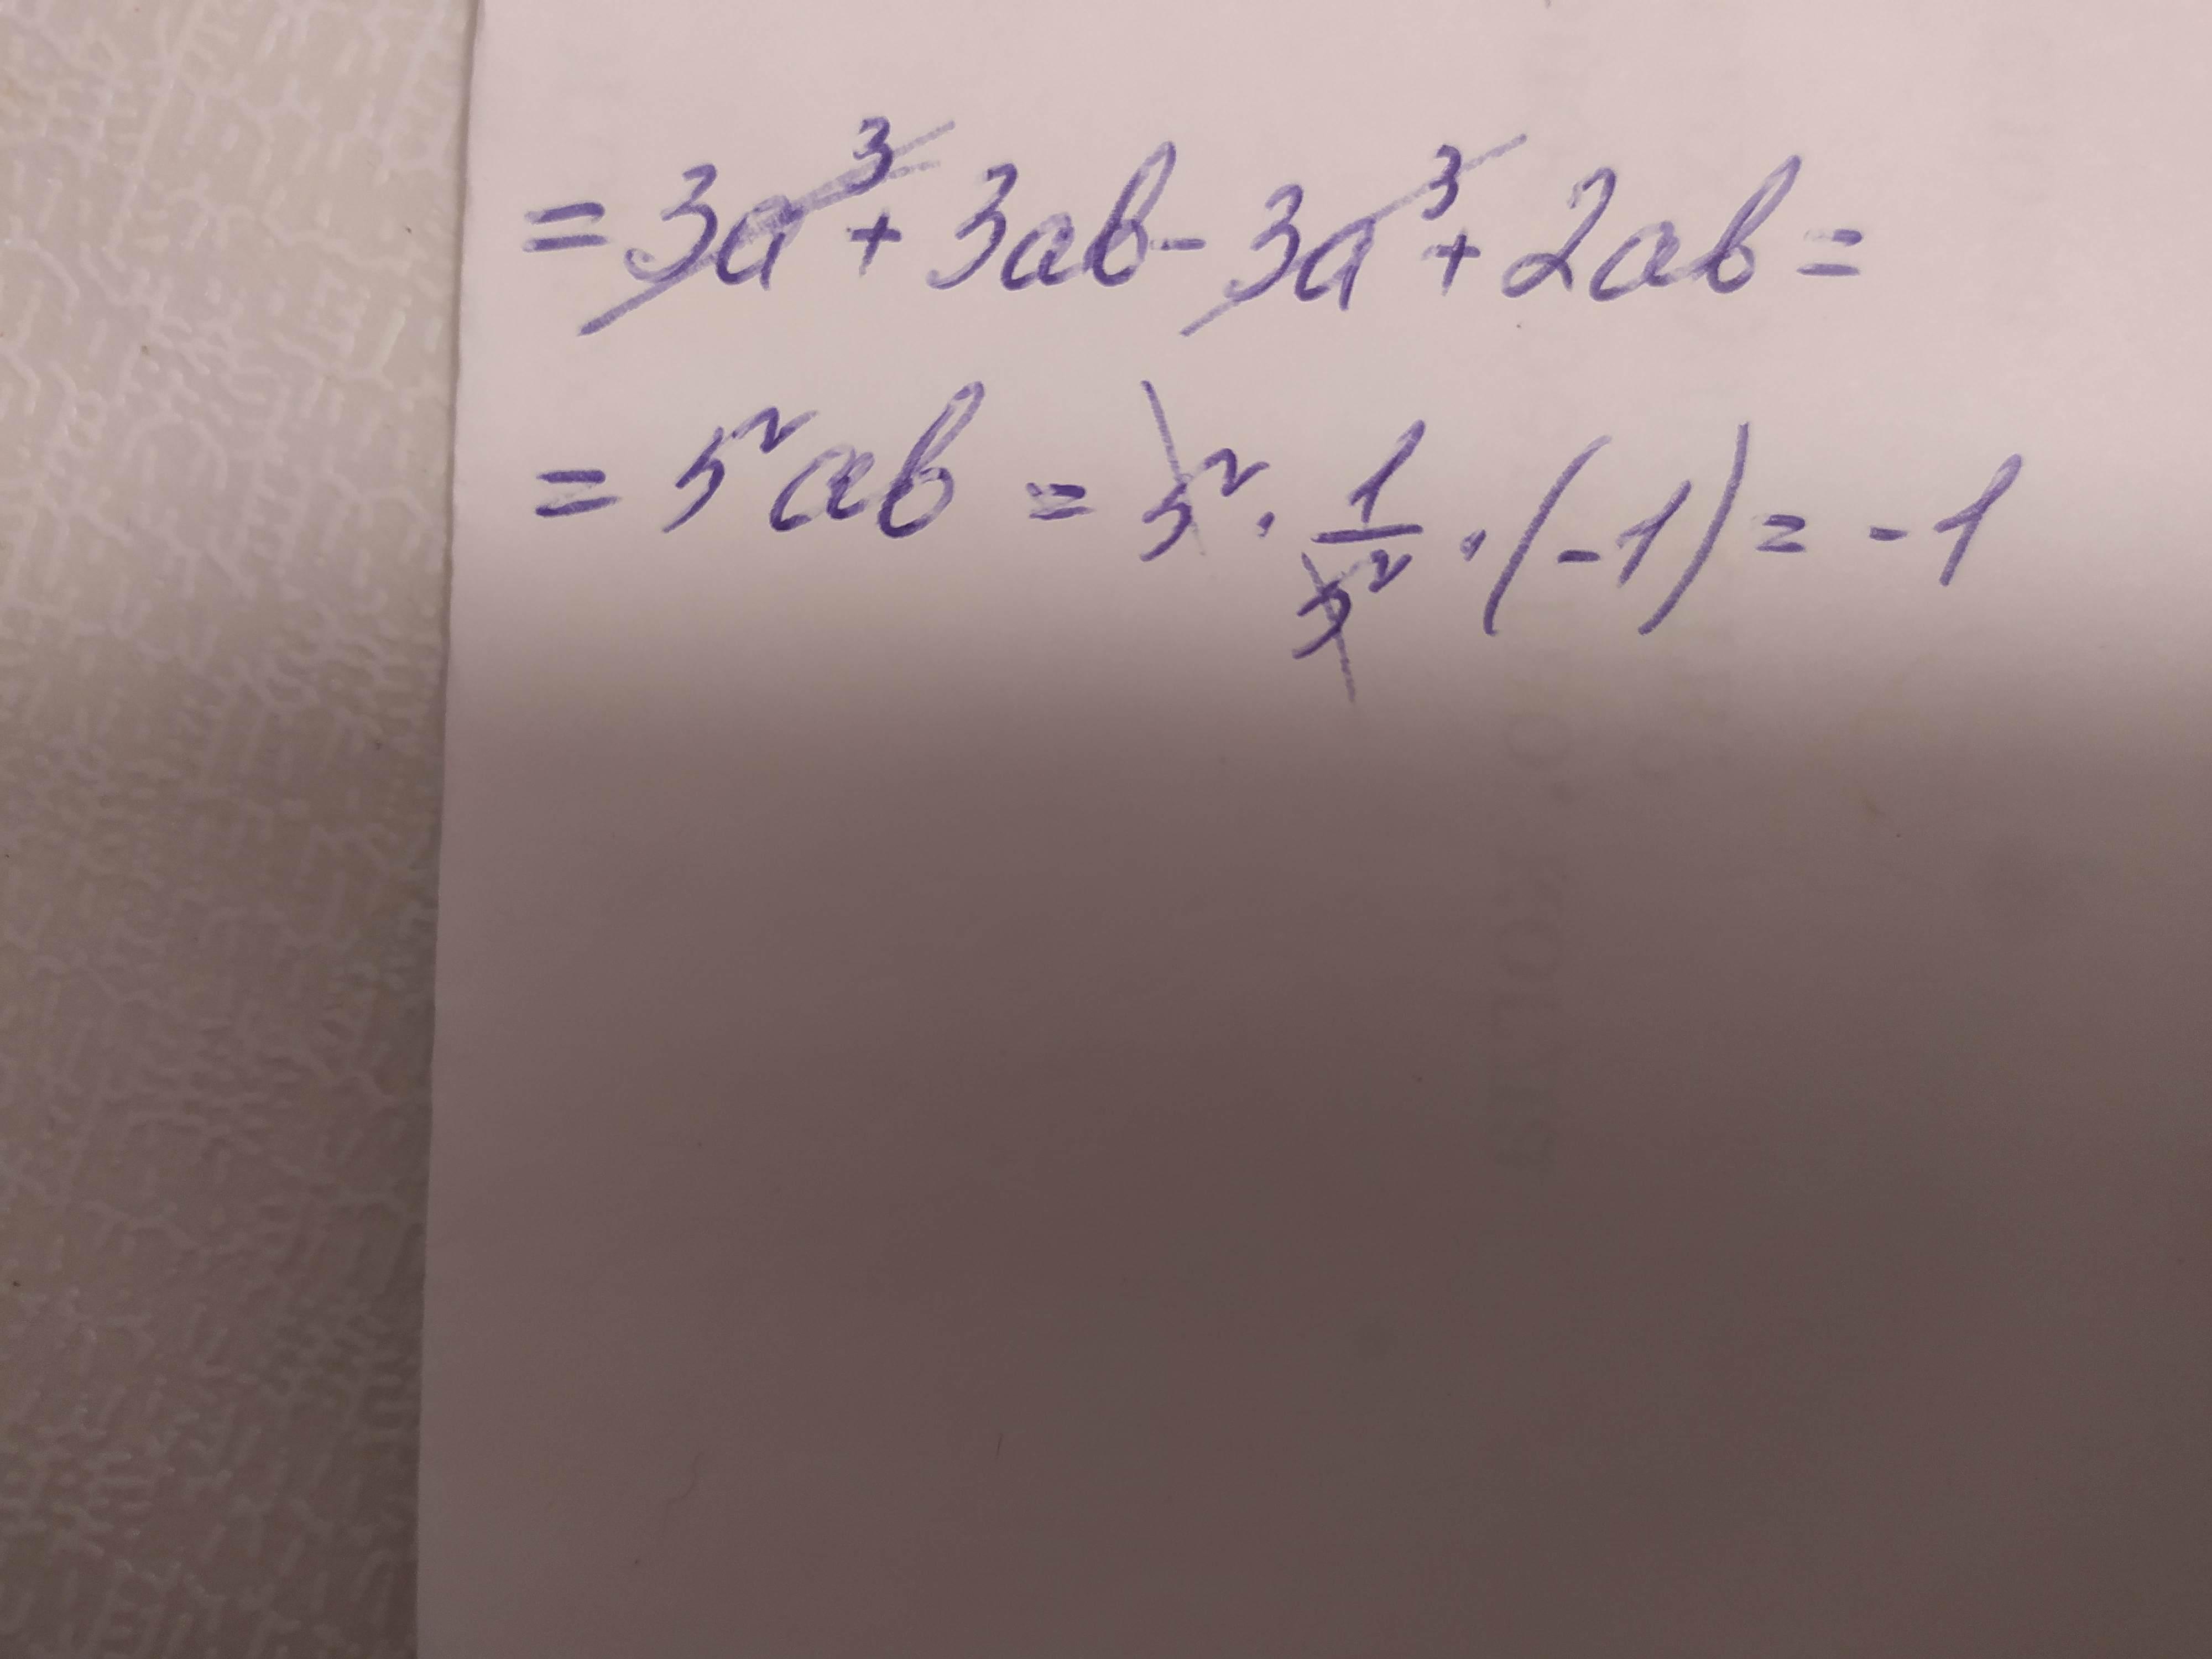 = 3a³ + 3ab - 3a³ + 2ab =
= 5ab = 5 · 1/5 · (-1) = -1